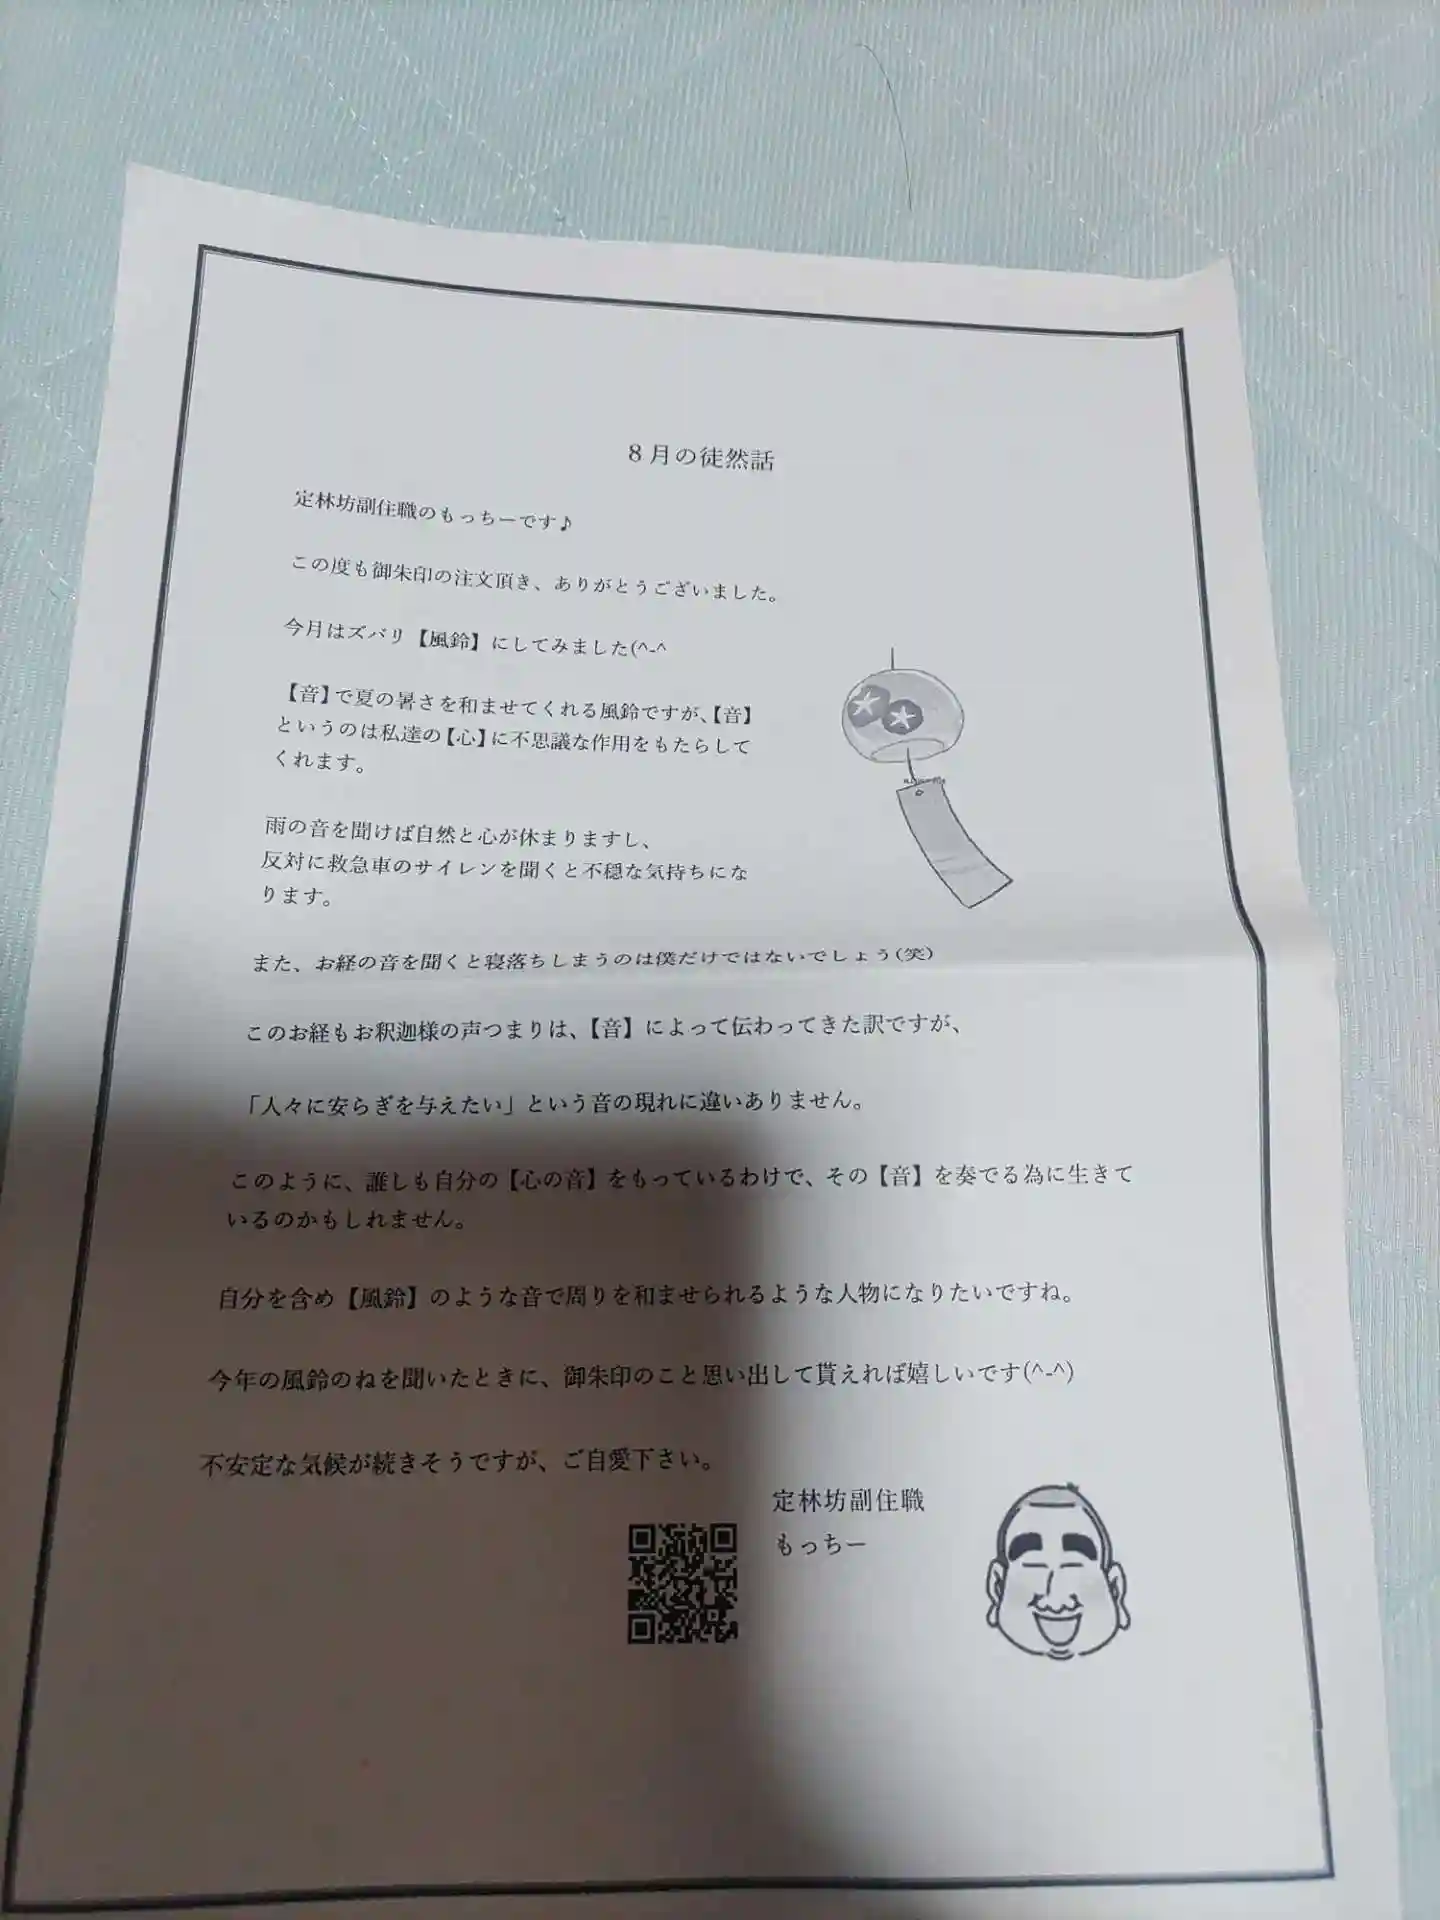 8月の徒然話
定林坊副住職のもっちーです♪
この度も御朱印の注文頂き、ありがとうございました。
今月はズバリ【風鈴】にしてみました(^-^
【音】で夏の暑さを和ませてくれる風鈴ですが、【音】
というのは私達の【心】に不思議な作用をもたらして
くれます。
雨の音を聞けば自然と心が休まりますし、
反対に救急車のサイレンを聞くと不穏な気持ちにな
ります。
また、お経の音を聞くと寝落ちしまうのは僕だけではないでしょう(笑)
このお経もお釈迦様の声つまりは、【音】によって伝わってきた訳ですが、
「人々に安らぎを与えたい」という音の現れに違いありません。
このように、誰しも自分の【心の音】をもっているわけで、その【音】を奏でる為に生きて
いるのかもしれません。
自分を含め【風鈴】のような音で周りを和ませられるような人物になりたいですね。
今年の風鈴のねを聞いたときに、御朱印のこと思い出して貰えれば嬉しいです(^-^)
不安定な気候が続きそうですが、ご自愛下さい。
定林坊副住職
もっちー